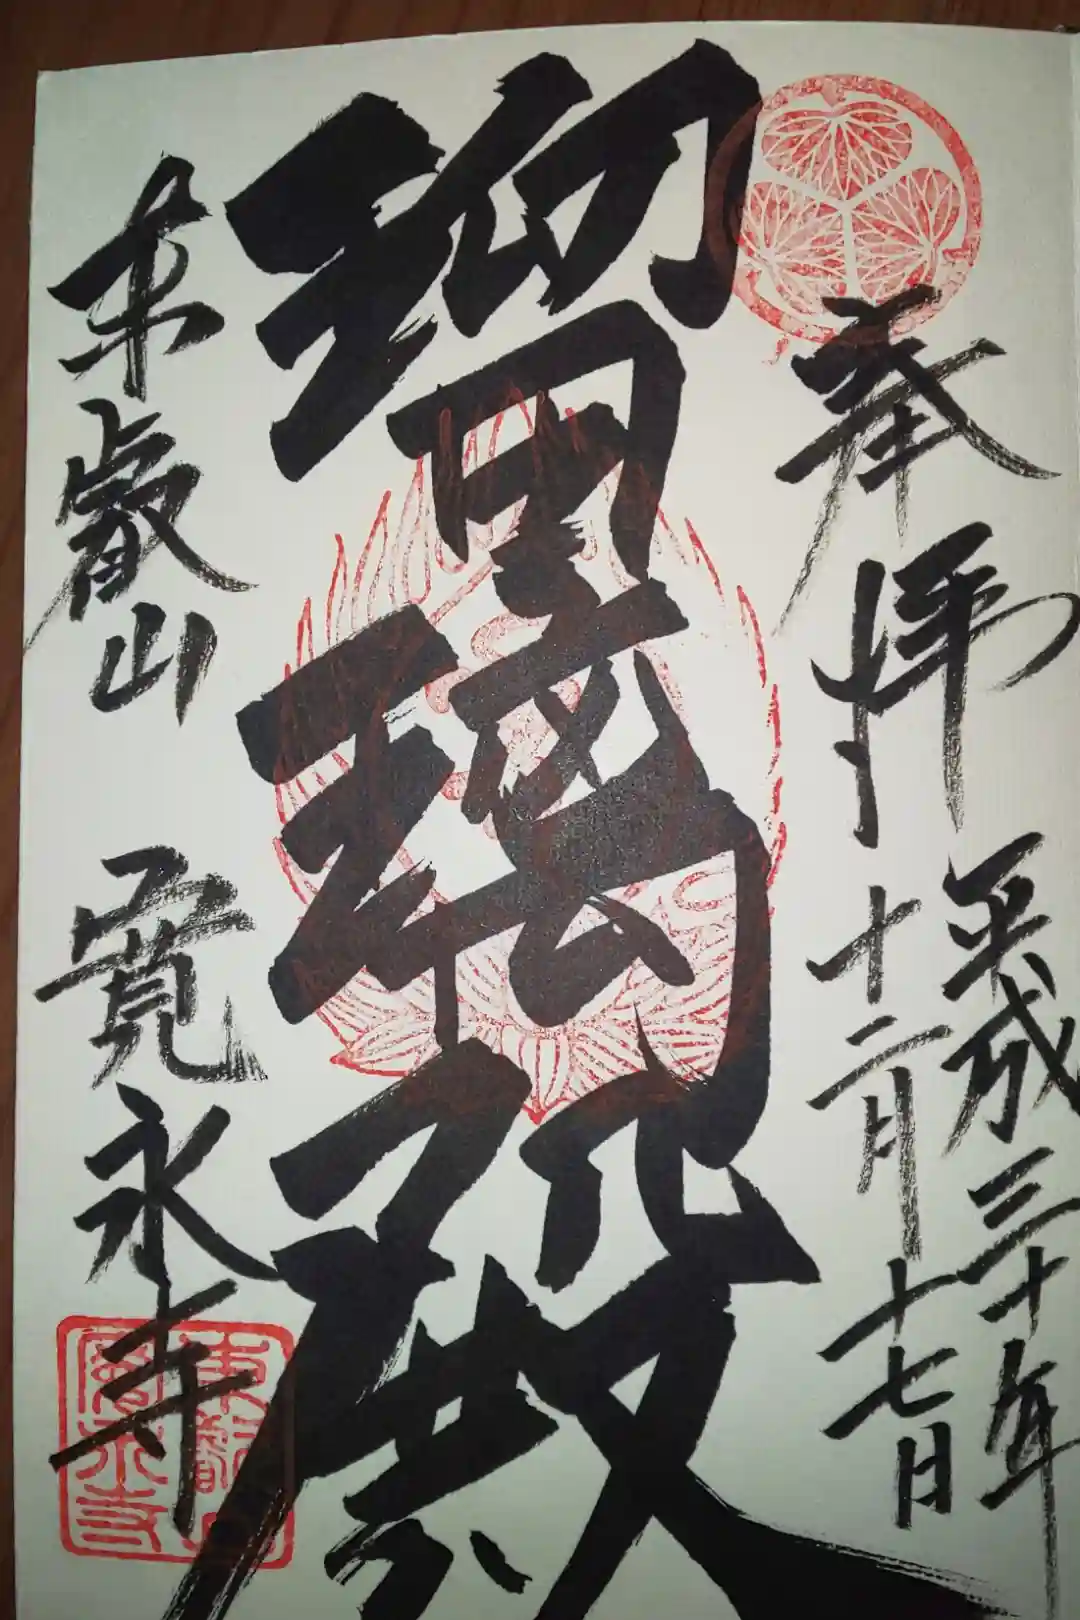 奉拝
平成三十年
十二月十七日
瑠璃殿
東叡山 寛永寺